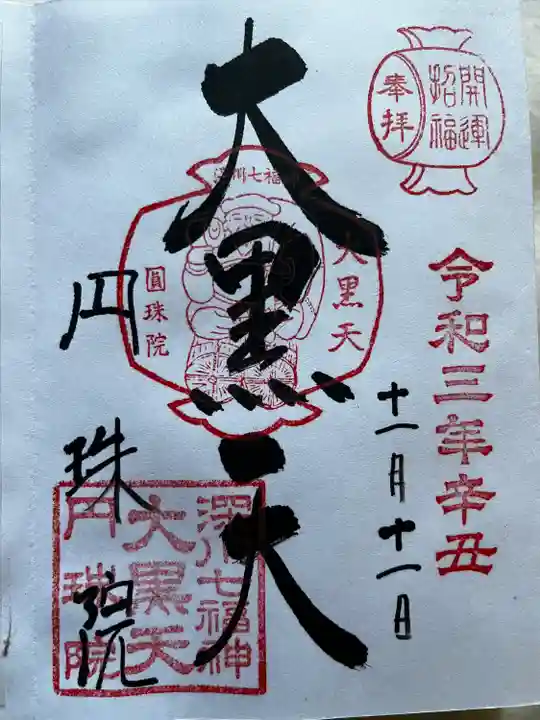 開運
招福
奉拝
令和三年辛丑
十一月十一日
大黒天
深川七福神
大黒天
圓珠院
円珠院
深川七福神
大黒天
円珠院